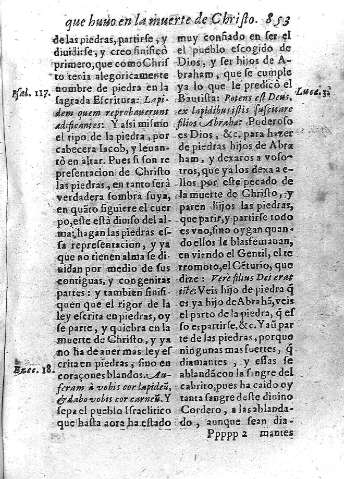 que huuo en la muerte de Christo. 853
de las piedras, partirse, y
diuidirse, y creo sinificò
primero, que como Christ
to tenia alegoricamente
nombre de piedra en la
Psal. 117. sagrada Escritura: Lapi-
dem quem reprobauerunt
ædificantes: Y assi mismo
el tipo de la piedra, por
cabecera Iacob, y leuan-
tò en altar. Pues si son re
presentacion de Christo
las piedras, en tanto serà
verdadera sombra suya,
en quãto siguiere el cuer
po, este està dioso del al-
ma; hagan las piedras es-
sa representacion, y ya
que no tienen alma se di-
uidan por medio de sus
contiguas, y congenitas
partes: y tambien sinifi-
quen que el rigor de la
ley escrita en piedras, oy
se parte, y quiebra en la
muerte de Christo, y ya
no ha de auer mas ley es
crita en piedras, sino en
Ezec. 18. coraçones blandos. Au-
feram à vobis cor lapideũ,
& dabo vobis cor carneũ. Y
sepa el pueblo Israelitico
que hasta aora ha estado
muy confiado en ser el
el pueblo escogido de
Dios, y ser hijos de A-
braham, que se cumple
ya lo que le predicò el
Bautista: Potens est Deus, Luc. 3.
ex lapidibus istis suscitare
filios Abrahæ. Poderoso
es Dios, &c. para hazer
de piedras hijos de Abra
ham, y dexaros a voso-
tros, que ya los dexa a e-
llos por este pecado de
la muerte de Christo, y
paren hijos las piedras,
que parir, y partirse todo
es vno, sino oygan quan-
do ellos le blasfemauan,
en viendo el Gentil, el te
rremoto, el Cẽturio, que
dize: Vere filius Dei erat
iste. Veis hijo de piedra q̃
es ya hijo de Abrahã, veis
el parto de la piedra, q̃ es
so es partirse, &c. Y aũ par
te de las piedras, porque
ningunas mas fuertes, q̃
diamantes, y essas se
ablandã con la sangre del
cabrito, pues ha caido oy
tanta sangre deste diuino
Cordero, a las ablanda-
do, aunque sean dia-
Ppppp 2 mantes